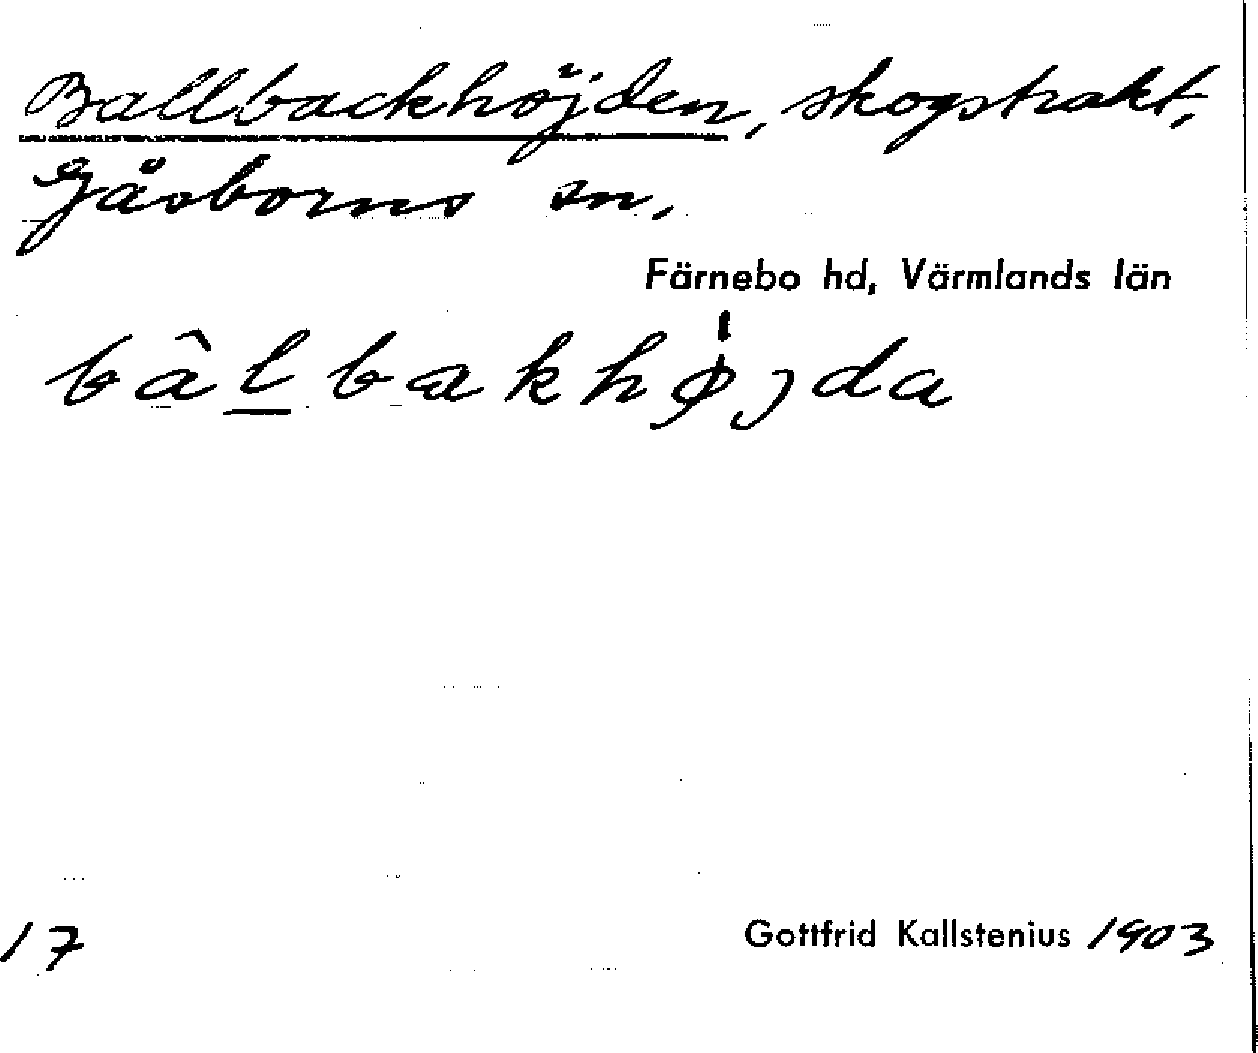 Ballbackhöjden, skogstrakt,
Gåsborns sn,
Färnebo hd, Värmlands län
bâl̲bakhø̍jda
17
Gottfrid Kallstenius 1903